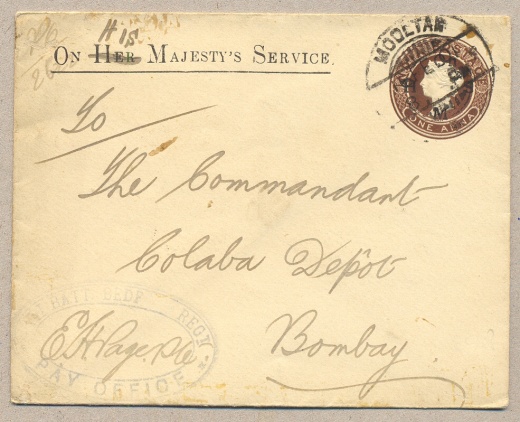 His
On Her Majesty's Service.
MOOLTAN
ONE ANNA
To
The Commandant
Colaba Depôt
Bombay.
BATT BEDF REGT
PAY OFFICE